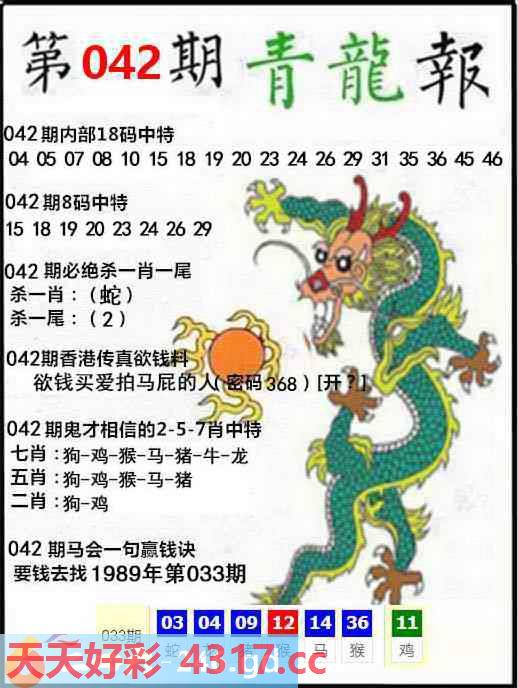 第042期青龍報
042期内部18码中特
04 05 07 08 10 15 18 19 20 23 24 26 29 31 35 36 45 46
042期8码中特
15 18 19 20 23 24 26 29
042期必绝杀一肖一尾
杀一肖：（蛇）
杀一尾：（2）
042期香港传真欲钱料
欲钱买爱拍马屁的人(密码368)[开?]
042期鬼才相信的2-5-7肖中特
七肖：狗-鸡-猴-马-猪-牛-龙
五肖：狗-鸡-猴-马-猪
二肖：狗-鸡
042期马会一句赢钱诀
要钱去找1989年第033期
033期 03 04 09 12 14 36 11
蛇 猪 猴 马 猴 鸡
天天好彩 4317.cc